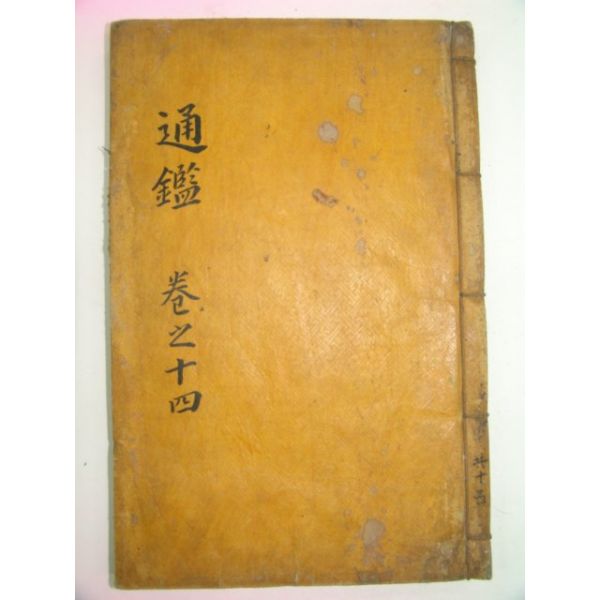 通鑑 卷之十四
共十五